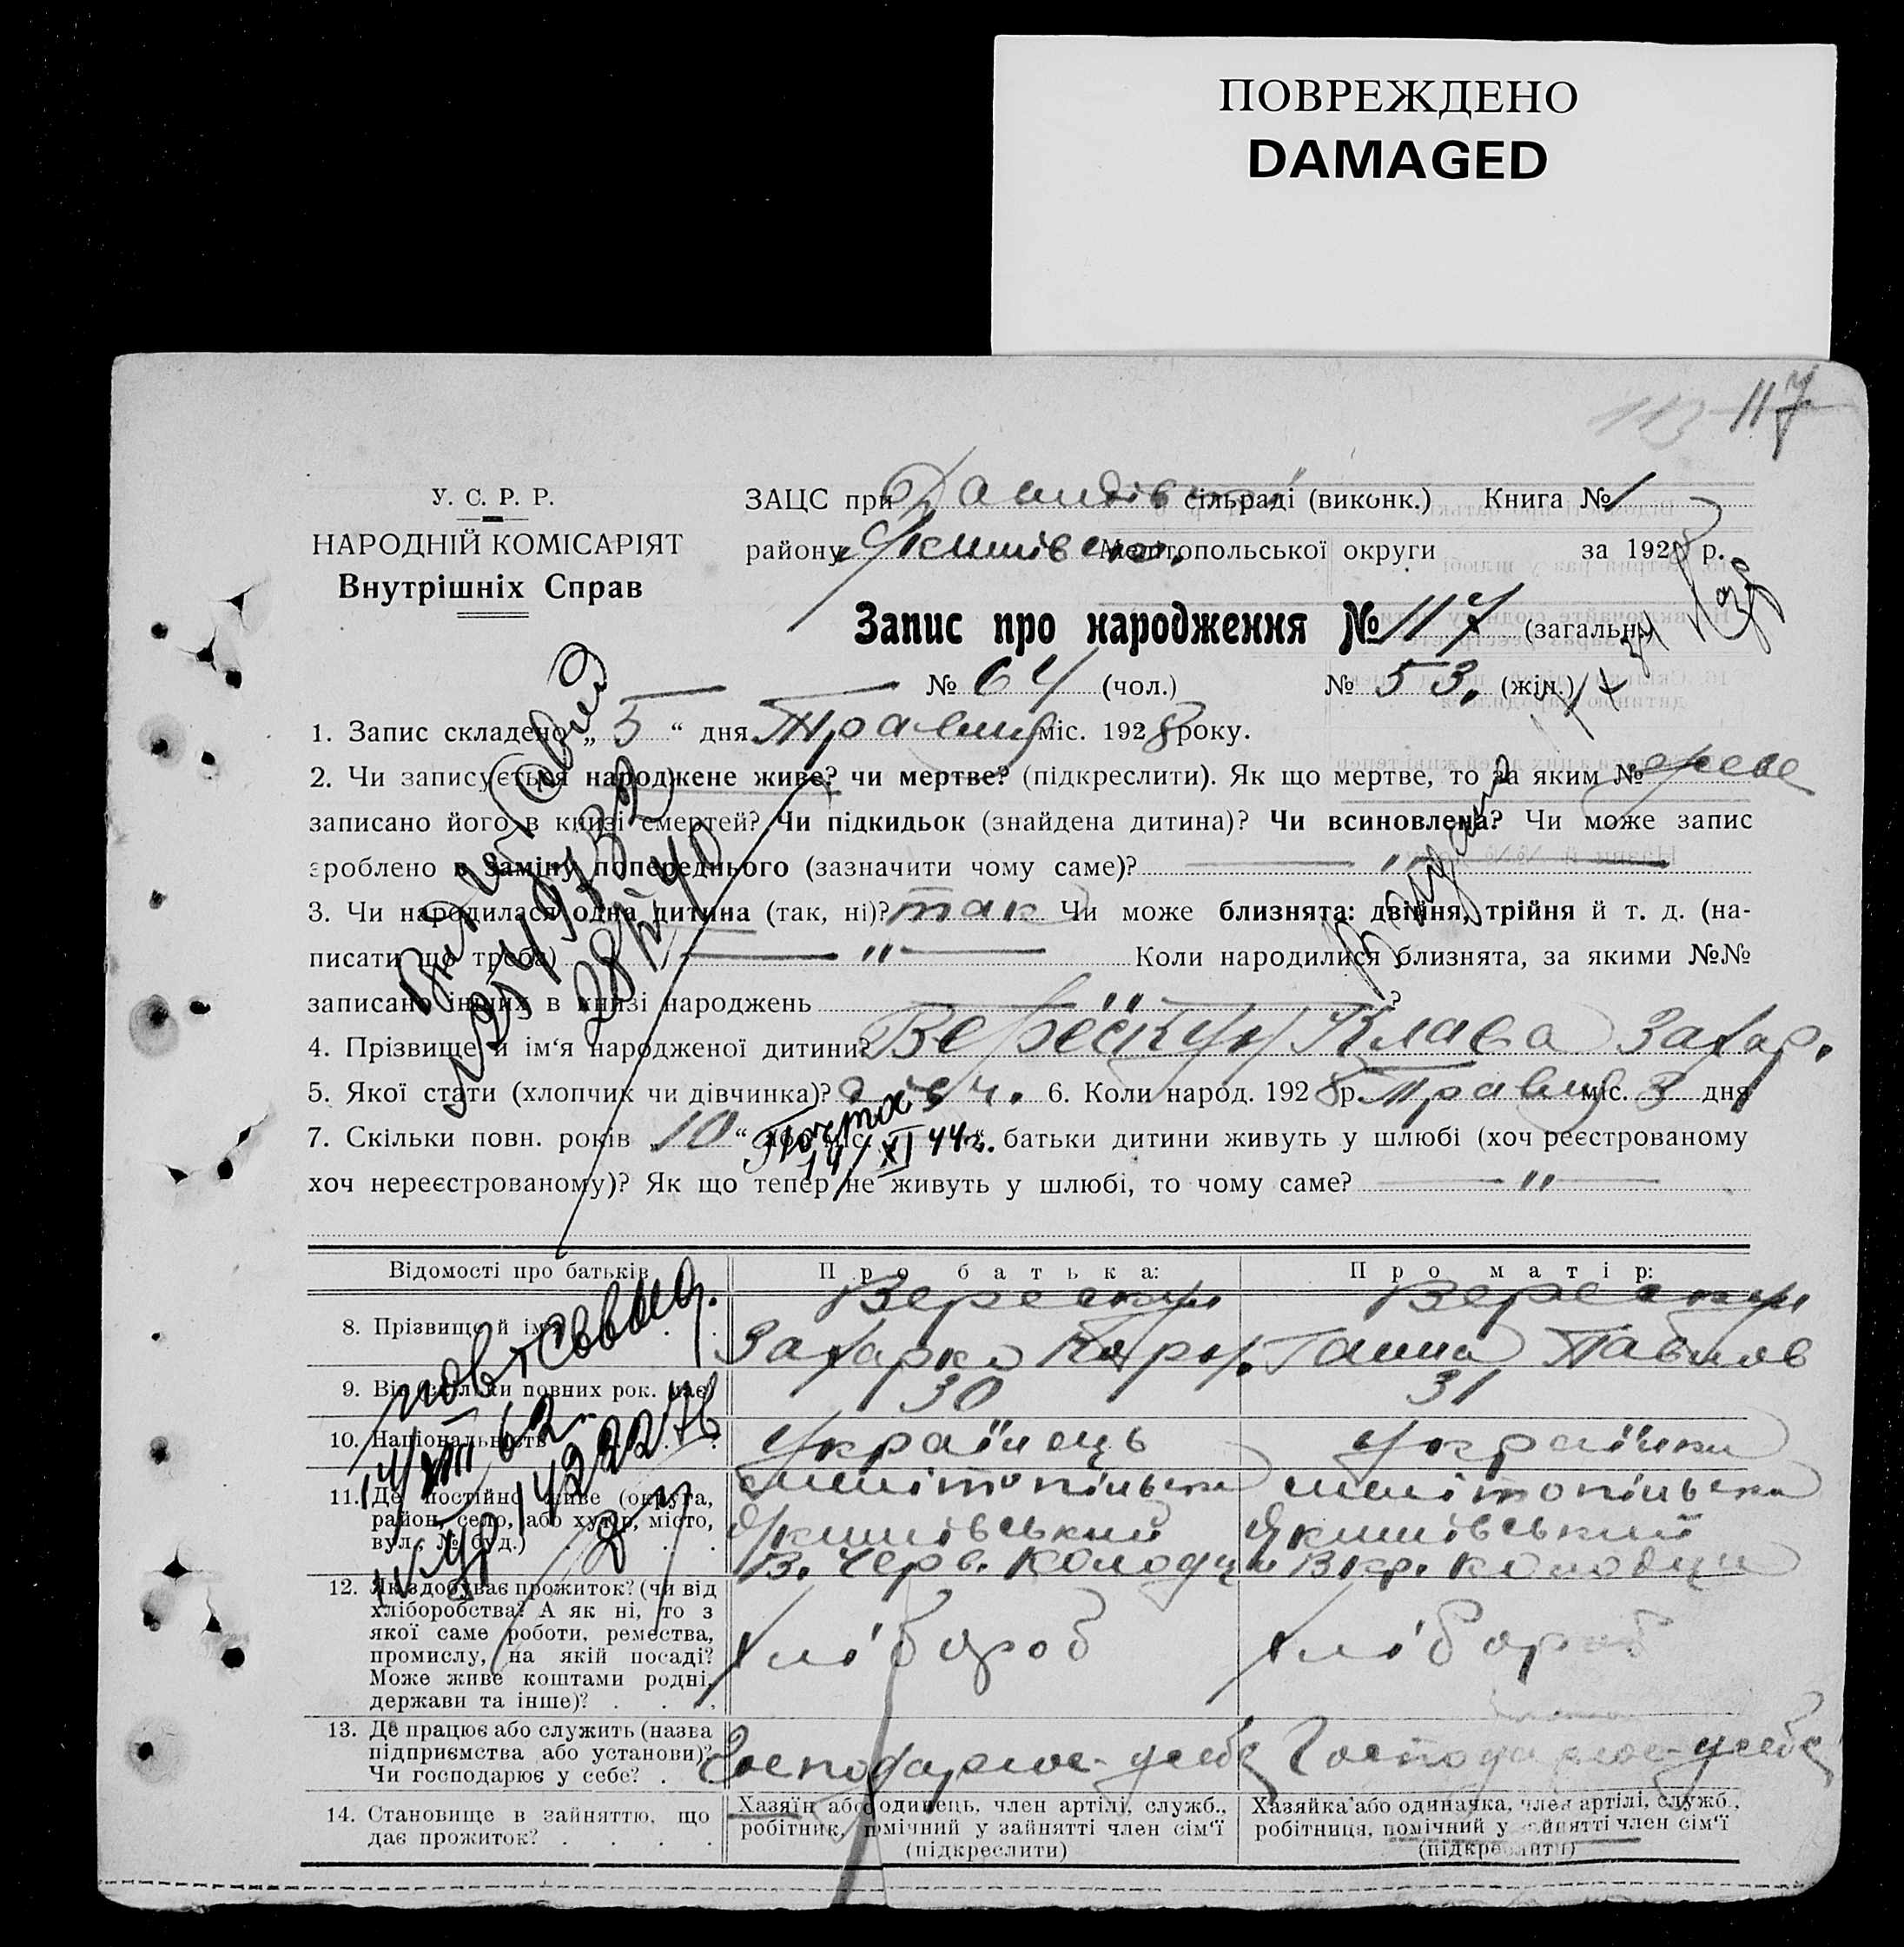 ПОВРЕЖДЕНО
DAMAGED
117
У. С. Р. Р.
НАРОДНІЙ КОМІСАРІЯТ
Внутрішніх Справ
ЗАЦС при Давидівській сільраді (виконк.) Книга № 1
району Якимівсько. Мелітопольської округи за 1928 р.
Запис про народження № 117 (загальн.)
№ 64 (чол.) № 53. (жін.)
1. Запис складено „ 5 “ дня Травня міс. 1928 року.
2. Чи записується народжене живе? чи мертве? (підкреслити). Як що мертве, то за яким №
записано його в книзі смертей? Чи підкидьок (знайдена дитина)? Чи всиновлена? Чи може запис
зроблено в заміну попереднього (зазначити чому саме)? — „ —
3. Чи народилася одна дитина (так, ні)? так Чи може близнята: двійня, трійня й т. д. (на-
писати що треба) — „ — Коли народилися близнята, за якими №№
записано інших в книзі народжень — „ — ?
4. Прізвище й ім‘я народженої дитини? Верескун Клава Захар.
5. Якої стати (хлопчик чи дівчинка)? дівч. 6. Коли народ. 1928 р. Травня міс. 3 дня
7. Скільки повн. років „ 10 “ батьки дитини живуть у шлюбі (хоч реєстрованому
хоч нереєстрованому)? Як що тепер не живуть у шлюбі, то чому саме? — „ —
Почта
14/XI 44г.
28/IV 40
Відомості про батьків
Про батька:
Про матір:
8. Прізвище й ім‘я
Верескун
Захарко
Верескун
Ганна Павлов
9. Від скільки повних рок. має
30
31
10. Національність
Українець
Українка
11. Де постійно живе (округа,
район, село, або хутір, місто,
вул., № буд.)
Мелітопільська
Якимівський
В. Черв. Колодци
Мелітопільська
Якимівський
колодци
12. Як здобуває прожиток? (чи від
хліборобства? А як ні, то з
якої саме роботи, ремества,
промислу, на якій посаді?
Може живе коштами родні,
держави та інше)?
хлібороб
хлібороб
13. Де працює або служить (назва
підприємства або установи)?
Чи господарює у себе?
Господарює у себе
Господарює у себе
14. Становище в зайняттю, що
дає прожиток?
Хазяїн або одинець, член артілі, служб.,
робітник, помічний у зайнятті член сім‘ї
(підкреслити)
Хазяйка або одиначка, член артілі, служб.,
робітниця, помічний у зайнятті член сім‘ї
(підкреслити)